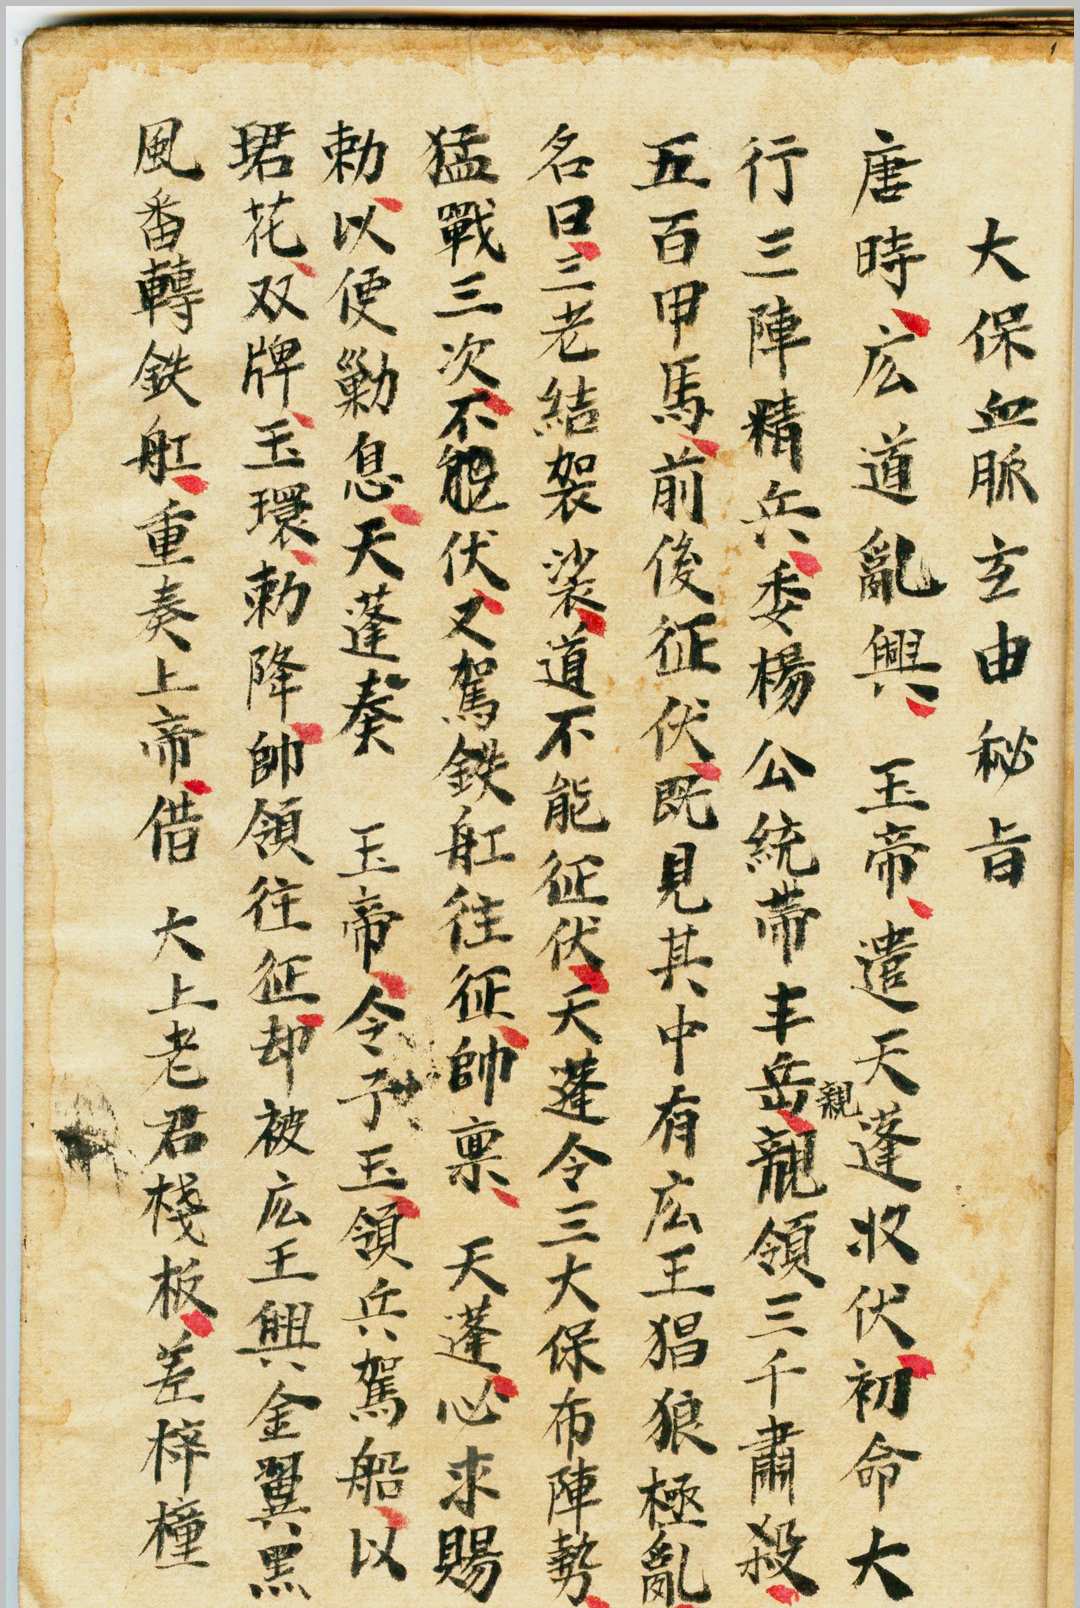 大保血脈玄由秘旨
唐時、広道亂興、玉帝、遣天蓬收伏、初命大
行三陣精兵、委楊公統帶丰岳、親龍領三千肅殺、
五百甲馬、前後征伏、既見其中有広王猖狼極亂、
名曰、三老結袈裟、道不能征伏、天蓬令三大保布陣勢、
猛戰三次、不能伏、又駕鉄舡往征、帥禀、天蓬、必求賜
勅、以便勦息、天蓬奏玉帝、令予玉、領兵駕船、以
珺花、双牌、玉環、勅降、帥領往征、却被広王興金翼黑
風番轉鉄舡、重奏上帝、借大上老君棧板、差梓橦